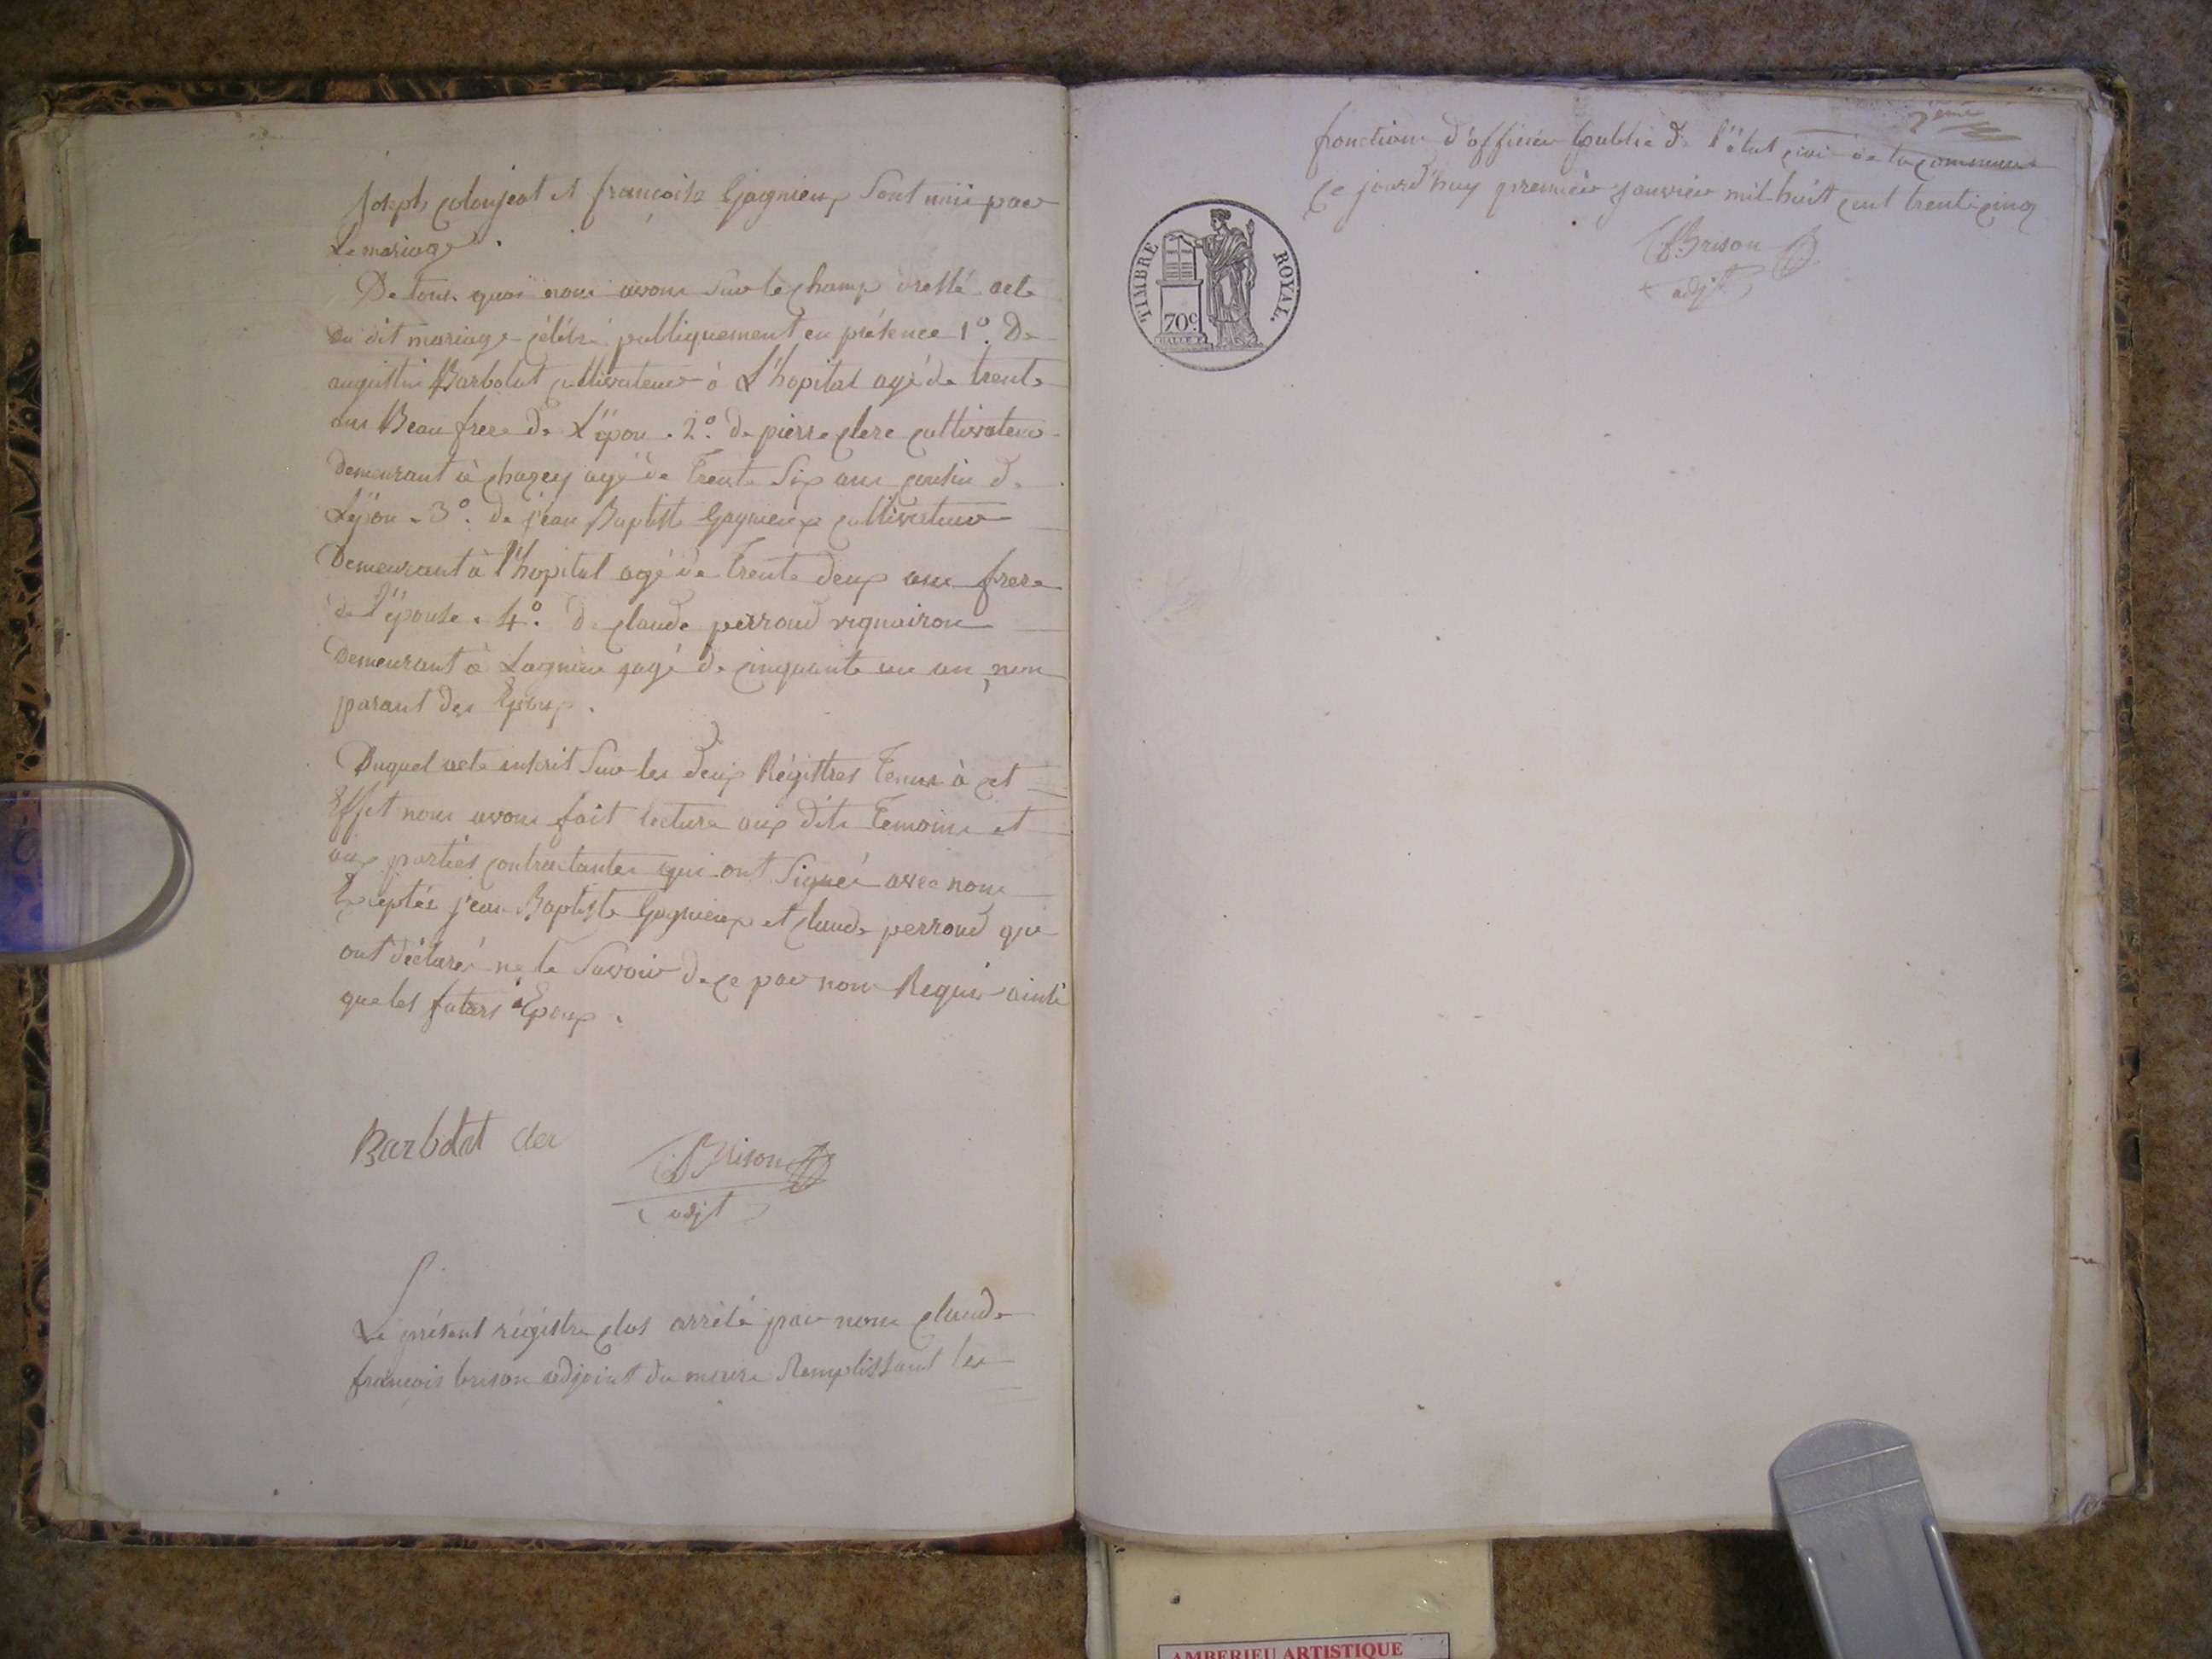 Joseph colonjeat et françoise Gagnieux Sont unis par
Le mariage.
De tous quoi nous avons Sur le champ dressé acte
du dit mariage célébré publiquement en présence 1º. De
augustin Barbolat cultivateur à L'hopital agé de trente
ans Beau frere de L'épou. 2º. de pierre clerc cultivateur
demeurant à chazey agé de Trente Six ans cousin de
L'épou. 3º. de jean Baptiste Gagnieux cultivateur
Demeurant à l'hopital agé de Trente deux ans frere
de l'épouse. 4º. de claude perroud vignairon
Demeurant à Lagnieu agé de cinquante un an, non
parant des Epoux.
Duquel acte inscrit Sur les deux Régistres Tenus à cet
Effet nous avons fait lecture aux dits Temoins et
aux parties contractantes qui ont Signés avec nous
Exceptés jean Baptiste Gagnieux et claude perroud qui
ont déclarés ne le Savoir de ce par nous Requis ainsi
que les futurs Epoux.
Barbolat cler
Brison
adjt
Le présent régistre clos arrêté par nous claude
françois brison adjoint du maire Remplissant les
2eme
fonctions d'officier public de l'état civil de la commune
Ce jourd'huy premier janvier mil huit cent trente cinq
TIMBRE ROYAL.
70c
Brison
adjt
AMBERIEU ARTISTIQUE